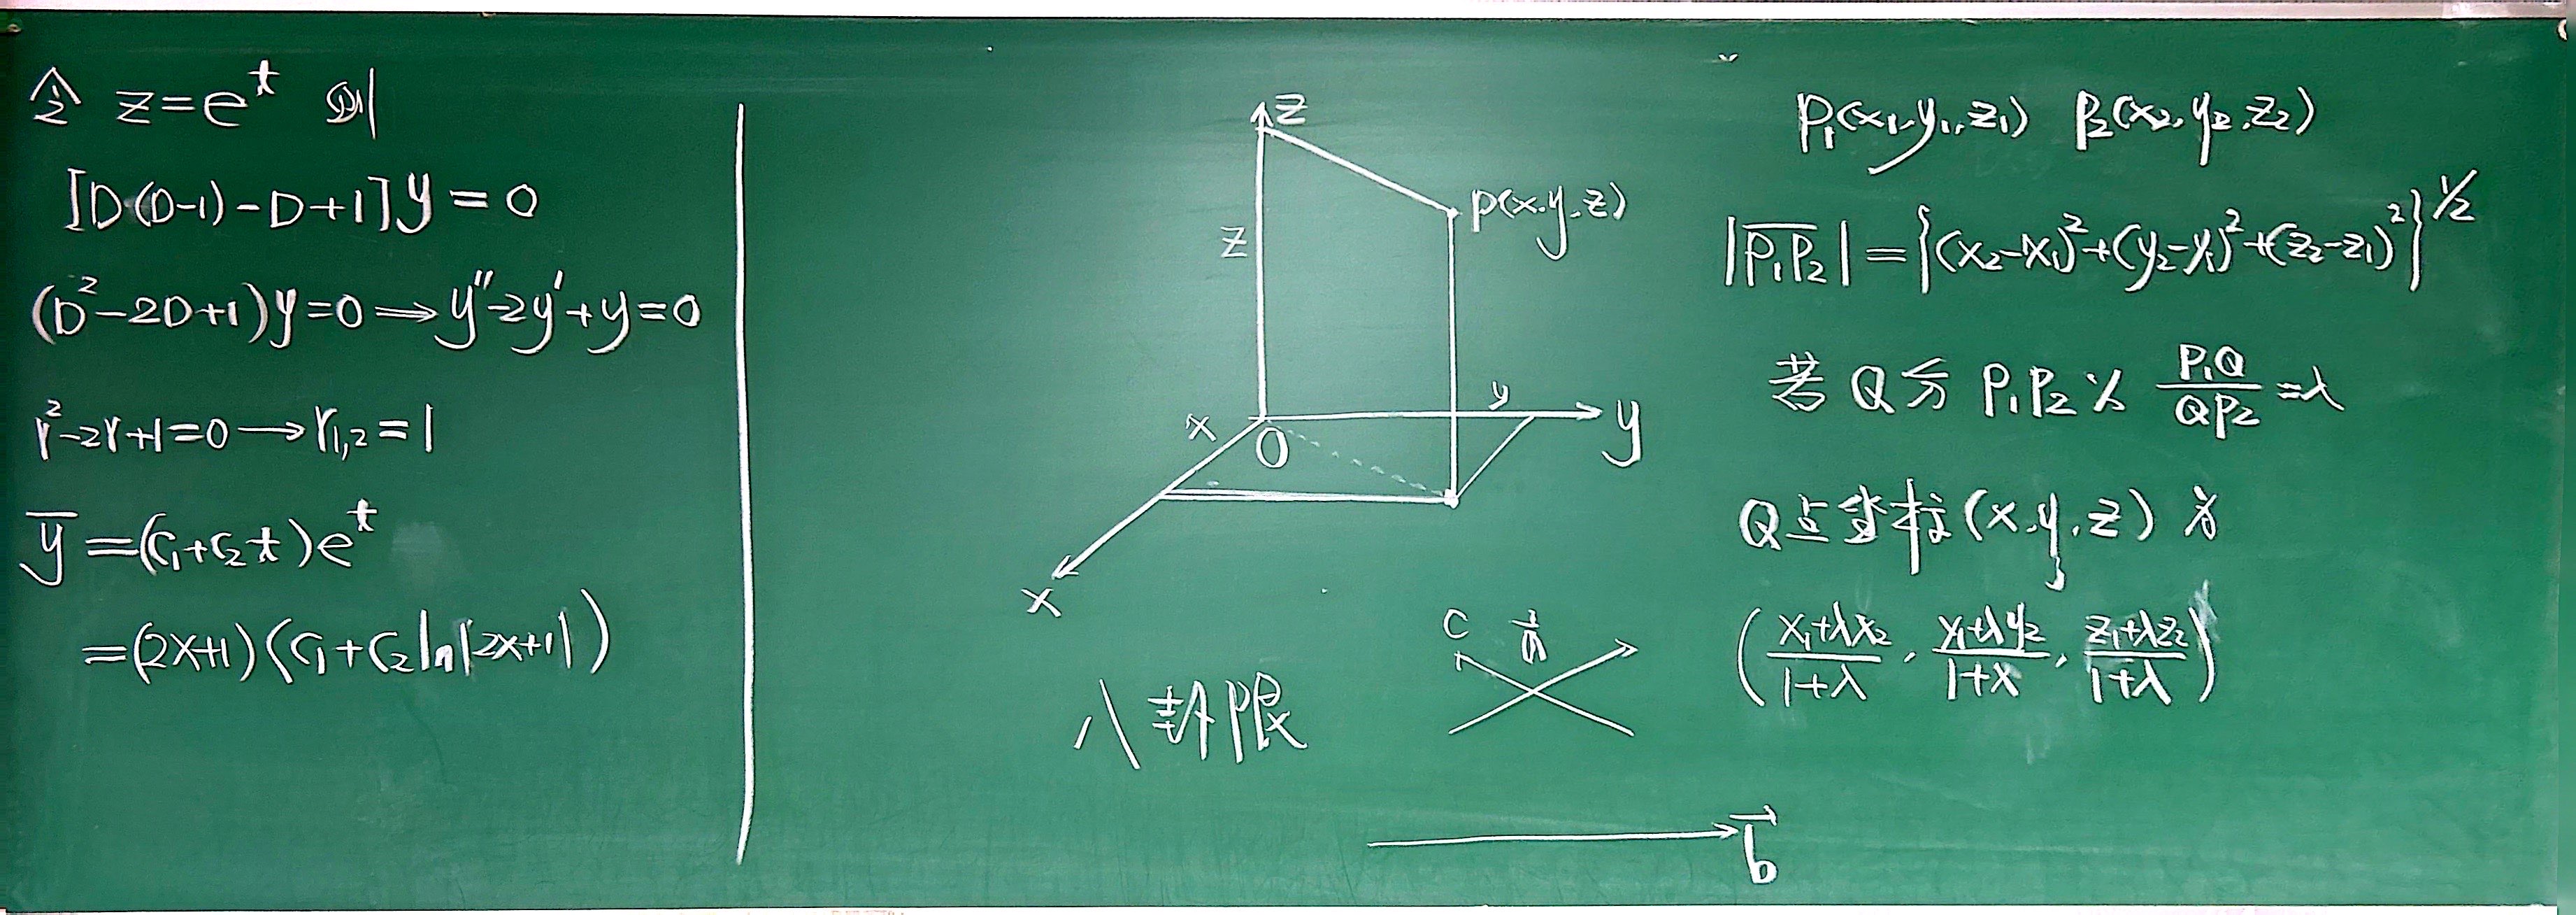 令 z=e^t 则
[D(D-1)-D+1]y=0
(D²-2D+1)y=0⟹y''-2y'+y=0
r²-2r+1=0⟶r₁,₂=1
y̅=(C₁+C₂t)e^t
=(2x+1)(C₁+C₂ln|2x+1|)
z
P(x,y,z)
z
y
x
O
y
x
八封限
c
b⃗
P₁(x₁,y₁,z₁) P₂(x₂,y₂,z₂)
|P₁P₂|={(x₂-x₁)²+(y₂-y₁)²+(z₂-z₁)²}^1/2
若Q分P₁P₂为 P₁Q/QP₂=λ
Q点坐标(x,y,z)为
((x₁+λx₂)/(1+λ), (y₁+λy₂)/(1+λ), (z₁+λz₂)/(1+λ))